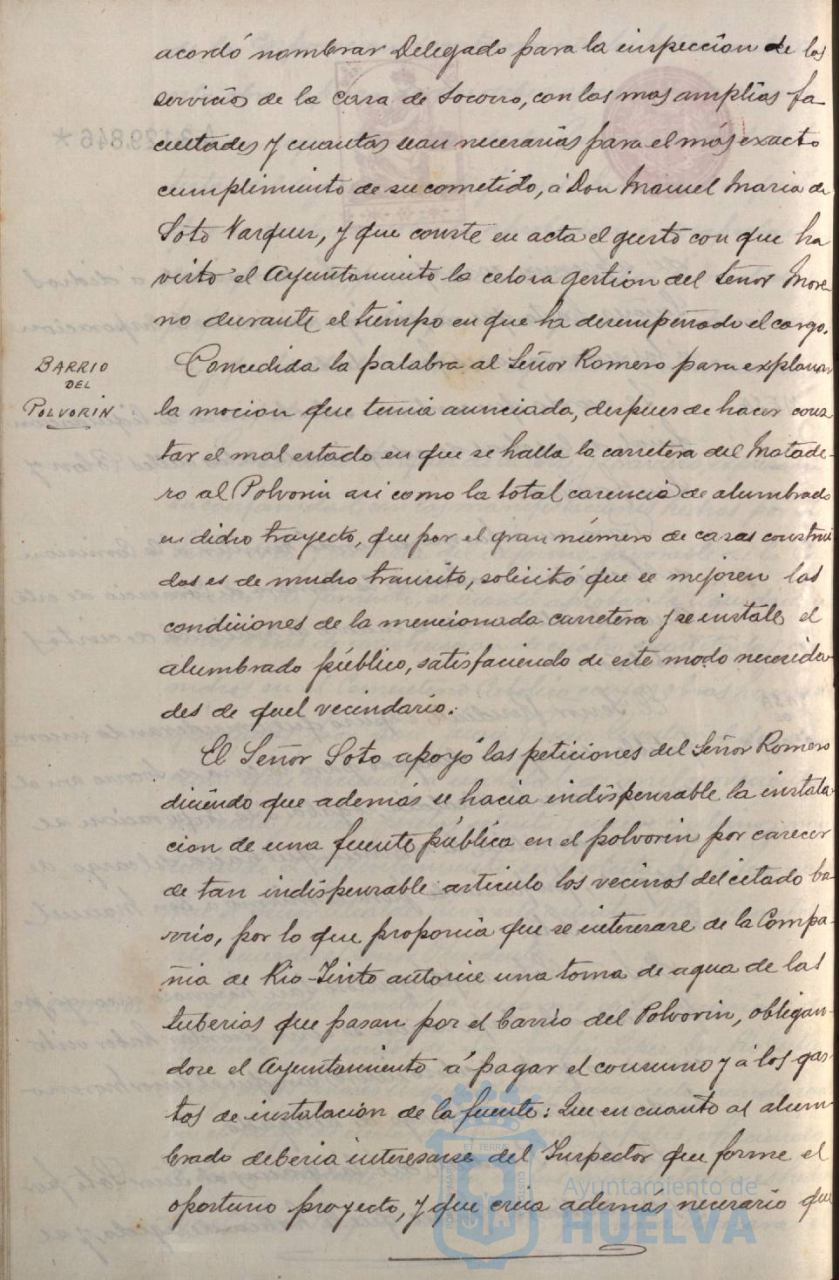 acordó nombrar Delegado para la inspeccion de los
servicios de la casa de Socorro, con las mas amplias fa-
cultades y cuantas sean necesarias para el más exacto
cumplimiento de su cometido, á Don Manuel Maria de
Soto Vazquez, y que conste en acta el gusto con que ha
visto el Ayuntamiento la celosa gestion del Señor More-
no durante el tiempo en que ha desempeñado el cargo.
BARRIO
DEL
POLVORIN
Concedida la palabra al Señor Romero para explanar
la mocion que tenia anunciada, despues de hacer cons-
tar el mal estado en que se halla la carretera del Matade-
ro al Polvorin asi como la total carencia de alumbrado
en dicho trayecto, que por el gran número de casas construi
das es de mucho transito, solicitó que se mejoren las
condiciones de la mencionada carretera y se instale el
alumbrado público, satisfaciendo de este modo necesida-
des de quel vecindario.
El Señor Soto apoyó las peticiones del Señor Romero
diciendo que además se hacia indispensable la instala
cion de una fuente pública en el polvorin por carecer
de tan indispensable articulo los vecinos del citado ba-
rrio, por lo que proponia que se interesase de la Compa-
ñia de Rio-Tinto autorice una toma de agua de las
tuberias que pasan por el barrio del Polvorin, obligan-
dose el Ayuntamiento á pagar el consumo y á los gas-
tos de instalación de la fuente: Que en cuanto al alum-
brado deberia interesarse del Inspector que forme el
oportuno proyecto, y que creia además necesario que
Ayuntamiento de
HUELVA